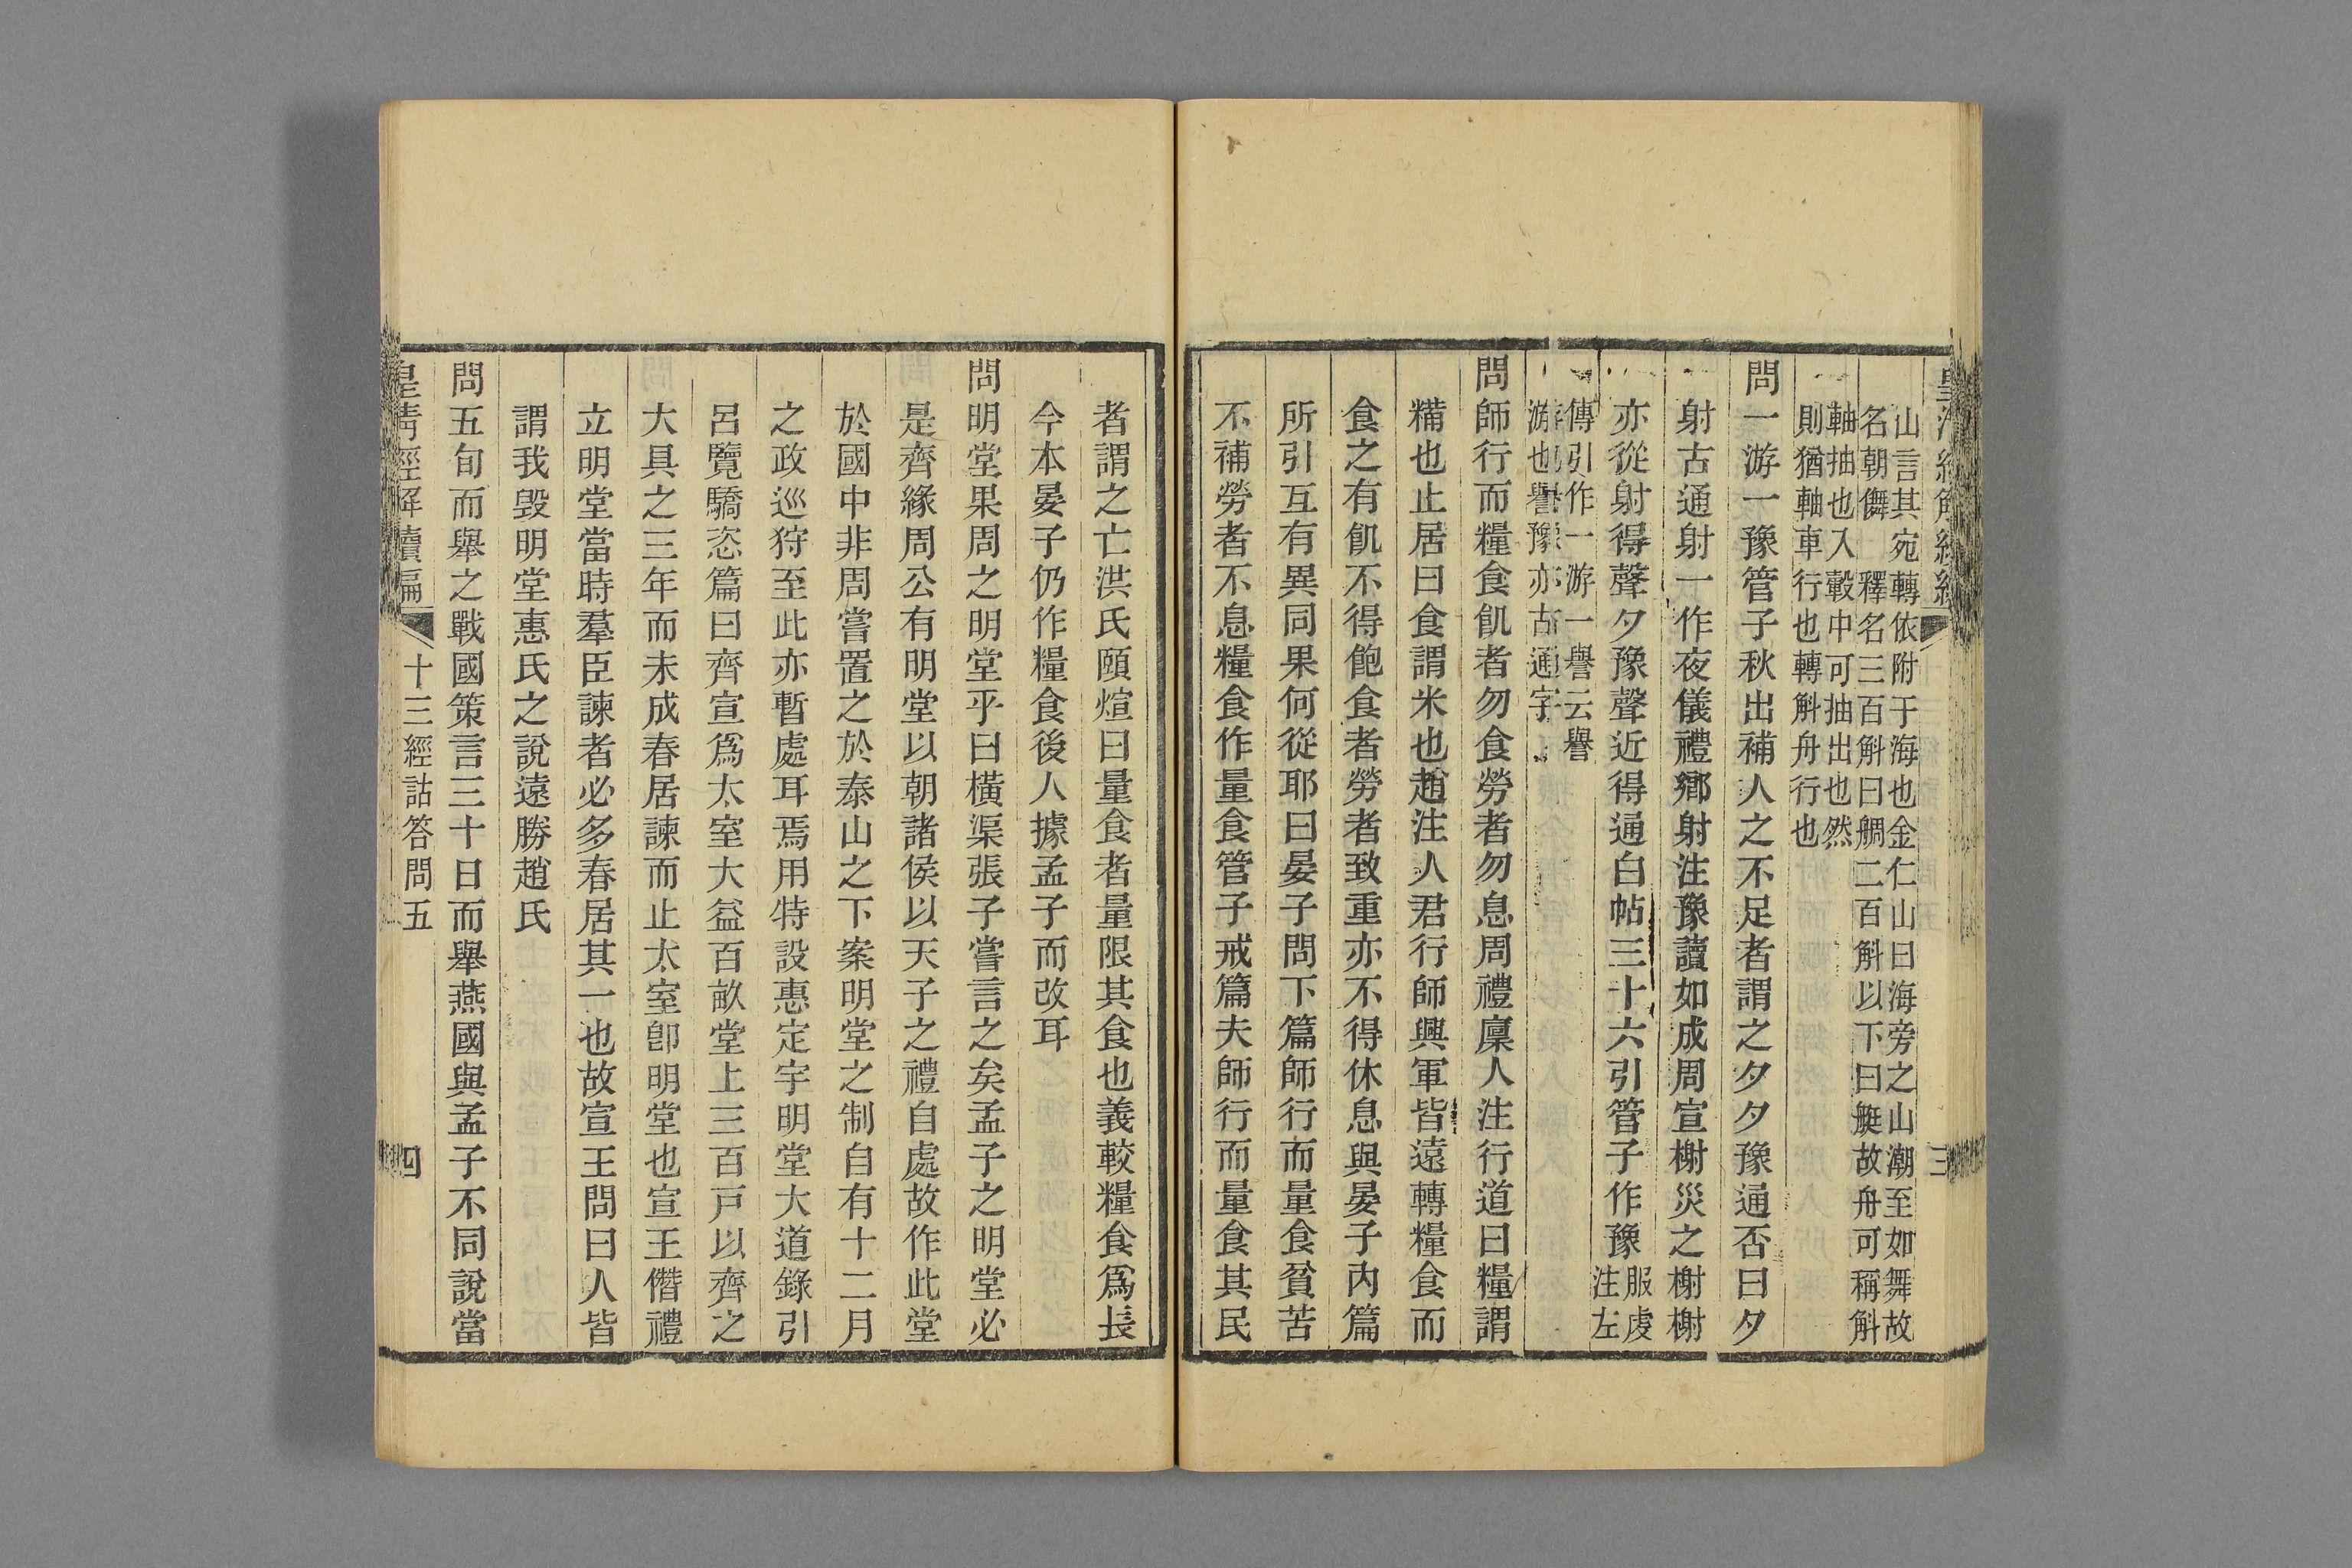 山言其宛轉依附于海也金仁山曰海旁之山潮至如舞故
名朝儛　釋名三百斛曰鯛二百斛以下曰艇故舟可稱斛
軸抽也入轂中可抽出也然
則猶軸車行也轉斛舟行也
問一游一豫管子秋出補人之不足者謂之夕夕豫通否曰夕
射古通射一作夜儀禮鄉射注豫讀如成周宣榭災之榭榭
亦從射得聲夕豫聲近得通白帖三十六引管子作豫服虔注左
傳引作一游一譽云譽
游也譽豫亦古通字
問師行而糧食飢者勿食勞者勿息周禮廩人注行道曰糧謂
糒也止居曰食謂米也趙注人君行師興軍皆遠轉糧食而
食之有飢不得飽食者勞者致重亦不得休息與晏子內篇
所引互有異同果何從耶曰晏子問下篇師行而量食貧苦
不補勞者不息糧食作量食管子戒篇夫師行而量食其民
者謂之亡洪氏頤煊曰量食者量限其食也義較糧食爲長
今本晏子仍作糧食後人據孟子而改耳
問明堂果周之明堂乎曰橫渠張子嘗言之矣孟子之明堂必
是齊緣周公有明堂以朝諸侯以天子之禮自處故作此堂
於國中非周嘗置之於泰山之下案明堂之制自有十二月
之政巡狩至此亦暫處耳焉用特設惠定宇明堂大道錄引
呂覽驕恣篇曰齊宣爲太室大益百畝堂上三百戸以齊之
大具之三年而未成春居諫而止太室卽明堂也宣王僭禮
立明堂當時羣臣諫者必多春居其一也故宣王問曰人皆
謂我毀明堂惠氏之說遠勝趙氏
問五旬而舉之戰國策言三十日而舉燕國與孟子不同說當
皇清經解續編　十三經詁答問五　四